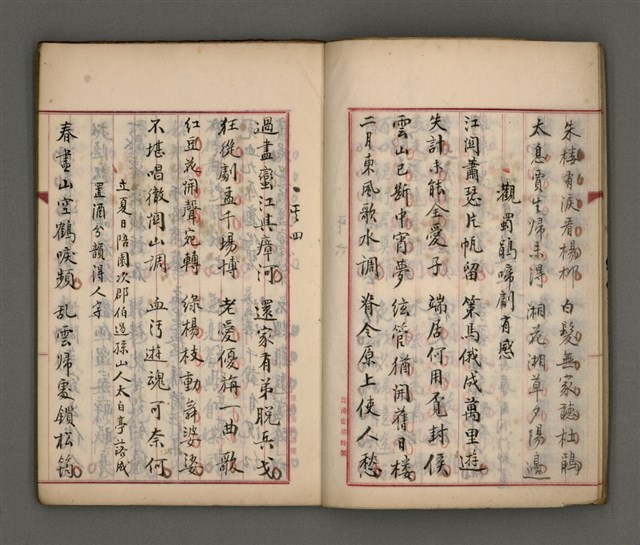 朱樓有淚看楊柳　白髮無家聽杜鵑
太息賈生歸未得　湘花湘草夕陽邊
觀蜀鵑啼劇有感
江関蕭瑟片帆留　策馬俄成萬里遊
失計未能全愛子　端居何用覓封侯
雲山已斷中宵夢　絃管猶開舊日樓
二月東風歌水調　脊令原上使人愁
其四
過盡蠻江與瘴河　還家有弟脫兵戈
狂從劇孟千場博　老愛優旃一曲歌
紅豆花開聲宛轉　綠楊枝動舞婆娑
不堪唱徹関山調　血污遊魂可奈何
立夏日陪園次郡伯過孫山人太白亭落成
置酒分韻得人字
春盡山空鶴唳頻　亂雲歸處鎖松筠